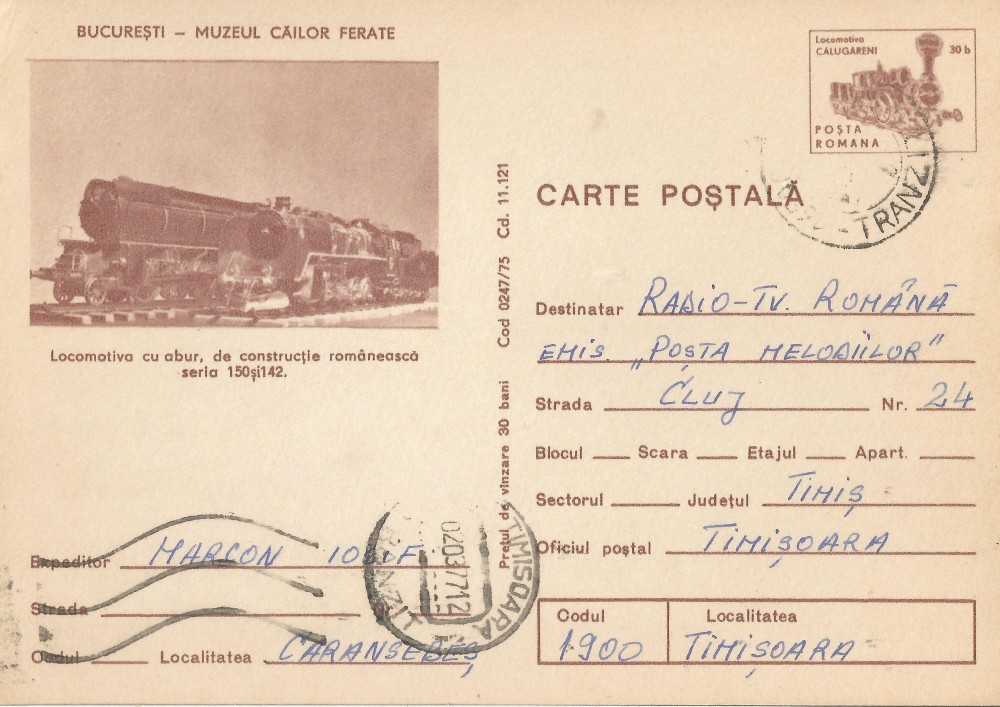 BUCUREȘTI – MUZEUL CĂILOR FERATE
Locomotiva cu abur, de construcție românească
seria 150și142.
Locomotiva
CĂLUGĂRENI 30 b
POȘTA
ROMANA
TRANZIT
CARTE POȘTALĂ
Prețul de vînzare 30 bani Cod 0247/75 Cd. 11.121
Destinatar RADIO-TV. ROMÂNĂ
EMIS. „POȘTA MELODIILOR"
Strada CLUJ Nr. 24
Blocul Scara Etajul Apart.
Sectorul Județul TIMIȘ
Oficiul poștal TIMIȘOARA
Codul Localitatea
1900 TIMIȘOARA
Expeditor MARCON IOSIF
Strada
Codul Localitatea CARANSEBEȘ
TIMISOARA
0203 77 12
TRANZIT